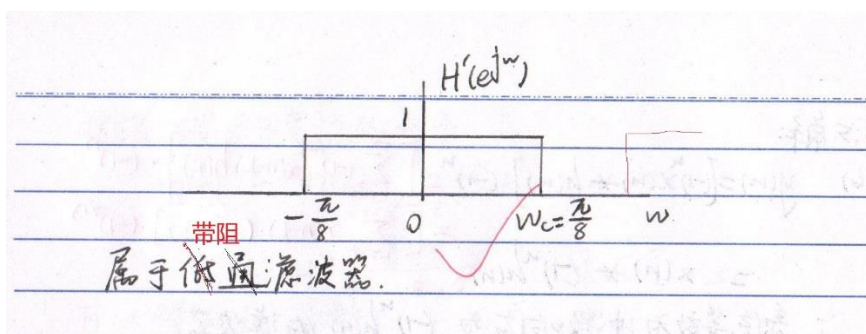 H'(e^jw)
1
-π/8 0 w_c=π/8 w
带阻
属于低通滤波器.